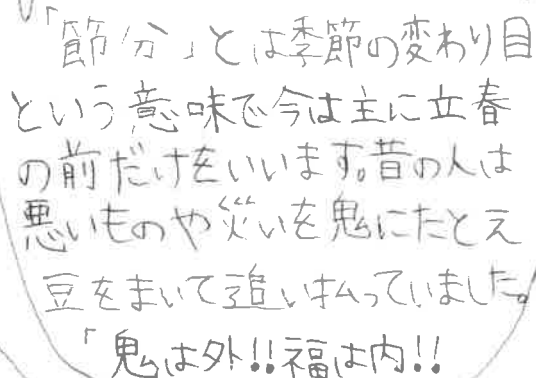 「節分」とは季節の変わり目
という意味で今は主に立春
の前だけをいいます。昔の人は
悪いものや災いを鬼にたとえ
豆をまいて追い払っていました。
「鬼は外!!福は内!!